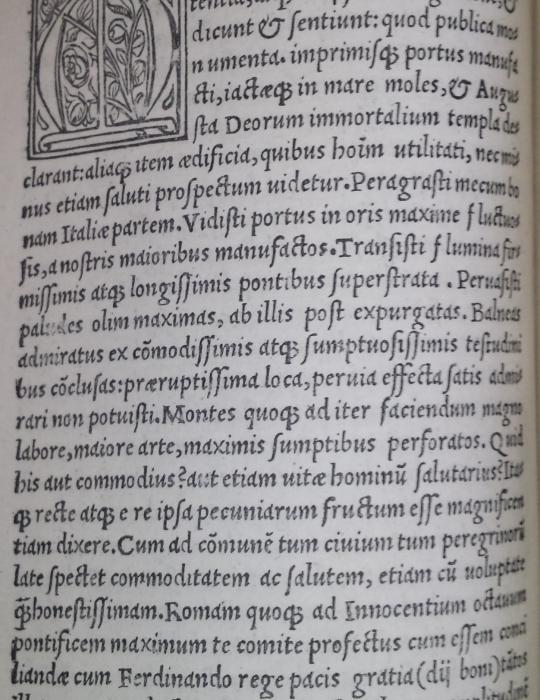 dicunt & sentiunt: quod publica mo
numenta. imprimisq; portus manufa
cti, iactæq; in mare moles, & Augu
sta Deorum immortalium templa de
clarant: aliaq; item ædificia, quibus hoīm utilitati, nec mi
nus etiam saluti prospectum uidetur. Peragrasti mecum bo
nam Italiæ partem. Vidisti portus in oris maxime fluctuo
sis, a nostris maioribus manufactos. Transisti flumina fir
missimis atq; longissimis pontibus superstrata. Peruasisti
paludes olim maximas, ab illis post expurgatas. Balneas
admiratus ex cōmodissimis atq; sumptuosissimis testudini
bus cōclusas: præruptissima loca, peruia effecta satis admi
rari non potuisti. Montes quoq; ad iter faciendum magno
labore, maiore arte, maximis sumptibus perforatos. Quid
his aut commodius? aut etiam uitæ hominū salutarius? Ita
q; recte atq; e re ipsa pecuniarum fructum esse magnificen
tiam dixere. Cum ad cōmunē tum ciuium tum peregrinorū
late spectet commoditatem ac salutem, etiam cū uoluptate
q̄ honestissimam. Romam quoq; ad Innocentium octauum
pontificem maximum te comite profectus cum essem conci
liandæ cum Ferdinando rege pacis gratia (dij boni)